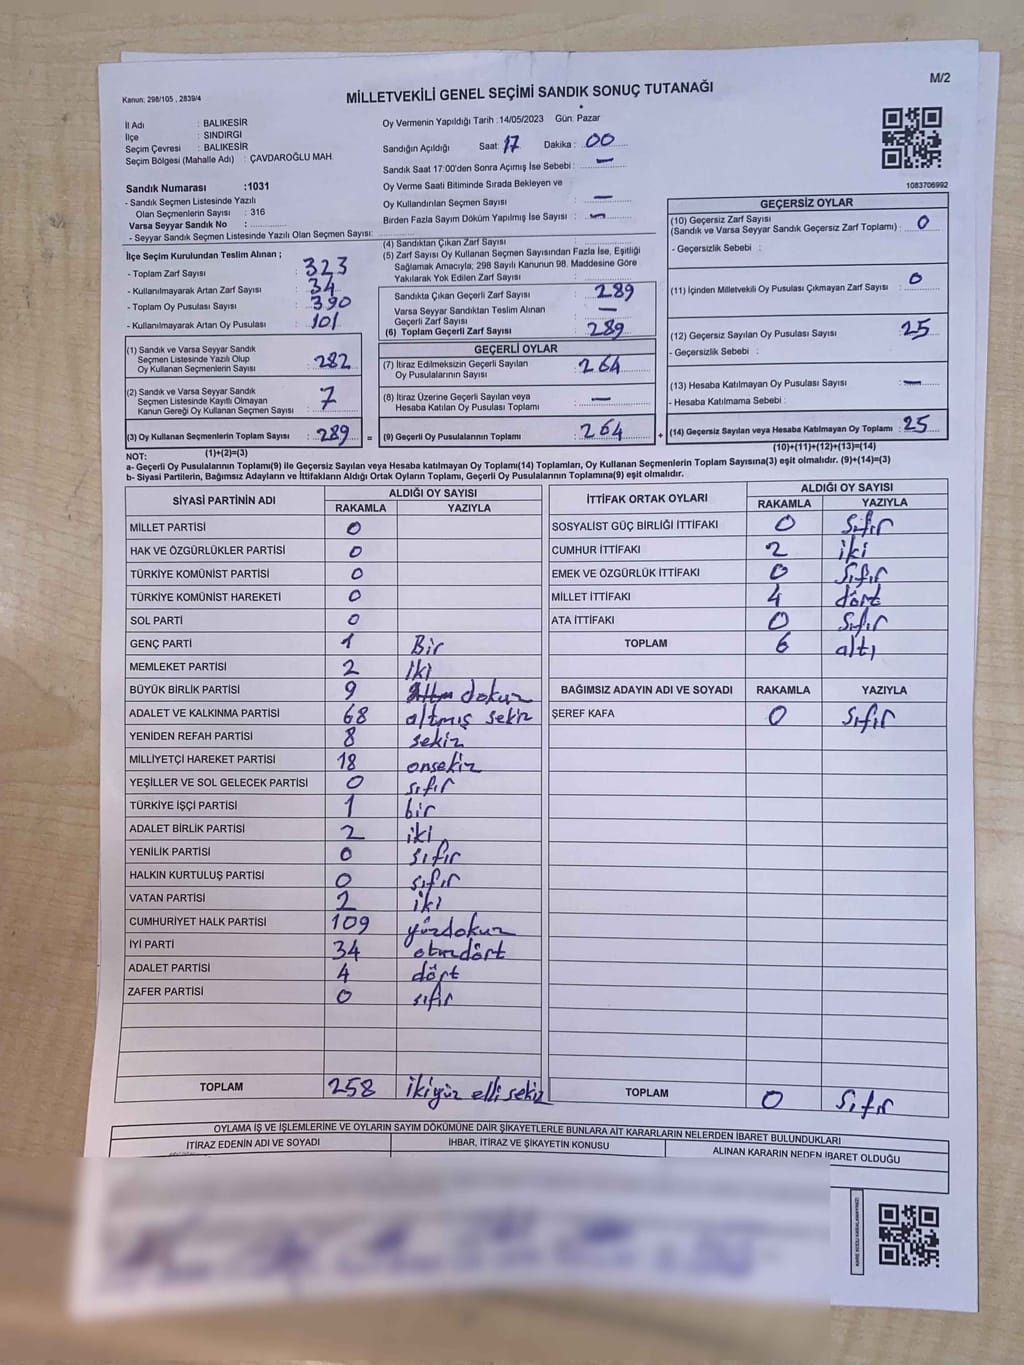 M/2
Kanun: 298/105 , 2839/4
MİLLETVEKİLİ GENEL SEÇİMİ SANDIK SONUÇ TUTANAĞI
İl Adı : BALIKESİR
İlçe : SINDIRGI
Seçim Çevresi : BALIKESİR
Seçim Bölgesi (Mahalle Adı) : ÇAVDAROĞLU MAH.
Sandık Numarası :1031
- Sandık Seçmen Listesinde Yazılı
Olan Seçmenlerin Sayısı : 316
Varsa Seyyar Sandık No :
- Seyyar Sandık Seçmen Listesinde Yazılı Olan Seçmen Sayısı:
Oy Vermenin Yapıldığı Tarih :14/05/2023 Gün: Pazar
Sandığın Açıldığı Saat: 17 Dakika : 00
Sandık Saat 17:00'den Sonra Açımış İse Sebebi : —
Oy Verme Saati Bitiminde Sırada Bekleyen ve
Oy Kullandırılan Seçmen Sayısı : —
Birden Fazla Sayım Döküm Yapılmış İse Sayısı : —
1083706992
İlçe Seçim Kurulundan Teslim Alınan ;
- Toplam Zarf Sayısı : 323
- Kullanılmayarak Artan Zarf Sayısı : 34
- Toplam Oy Pusulası Sayısı : 390
- Kullanılmayarak Artan Oy Pusulası : 101
(1) Sandık ve Varsa Seyyar Sandık
Seçmen Listesinde Yazılı Olup
Oy Kullanan Seçmenlerin Sayısı : 282
(2) Sandık ve Varsa Seyyar Sandık
Seçmen Listesinde Kayıtlı Olmayan
Kanun Gereği Oy Kullanan Seçmen Sayısı : 7
(3) Oy Kullanan Seçmenlerin Toplam Sayısı : 289 =
(1)+(2)=(3)
(4) Sandıktan Çıkan Zarf Sayısı :
(5) Zarf Sayısı Oy Kullanan Seçmen Sayısından Fazla İse, Eşitliği
Sağlamak Amacıyla; 298 Sayılı Kanunun 98. Maddesine Göre
Yakılarak Yok Edilen Zarf Sayısı :
Sandıkta Çıkan Geçerli Zarf Sayısı : 289
Varsa Seyyar Sandıktan Teslim Alınan
Geçerli Zarf Sayısı : —
(6) Toplam Geçerli Zarf Sayısı : 289
GEÇERLİ OYLAR
(7) İtiraz Edilmeksizin Geçerli Sayılan
Oy Pusulalarının Sayısı : 264
(8) İtiraz Üzerine Geçerli Sayılan veya
Hesaba Katılan Oy Pusulası Toplamı : —
(9) Geçerli Oy Pusulalarının Toplamı : 264 +
GEÇERSİZ OYLAR
(10) Geçersiz Zarf Sayısı
(Sandık ve Varsa Seyyar Sandık Geçersiz Zarf Toplamı) : 0
- Geçersizlik Sebebi :
(11) İçinden Milletvekili Oy Pusulası Çıkmayan Zarf Sayısı : 0
(12) Geçersiz Sayılan Oy Pusulası Sayısı : 25
- Geçersizlik Sebebi :
(13) Hesaba Katılmayan Oy Pusulası Sayısı : —
- Hesaba Katılmama Sebebi :
(14) Geçersiz Sayılan veya Hesaba Katılmayan Oy Toplamı : 25
(10)+(11)+(12)+(13)=(14)
NOT:
a- Geçerli Oy Pusulalarının Toplamı(9) ile Geçersiz Sayılan veya Hesaba katılmayan Oy Toplamı(14) Toplamları, Oy Kullanan Seçmenlerin Toplam Sayısına(3) eşit olmalıdır. (9)+(14)=(3)
b- Siyasi Partilerin, Bağımsız Adayların ve İttifakların Aldığı Ortak Oyların Toplamı, Geçerli Oy Pusulalarının Toplamına(9) eşit olmalıdır.
SİYASİ PARTİNİN ADI ALDIĞI OY SAYISI
RAKAMLA YAZIYLA
MİLLET PARTİSİ 0
HAK VE ÖZGÜRLÜKLER PARTİSİ 0
TÜRKİYE KOMÜNİST PARTİSİ 0
TÜRKİYE KOMÜNİST HAREKETİ 0
SOL PARTİ 0
GENÇ PARTİ 1 Bir
MEMLEKET PARTİSİ 2 İki
BÜYÜK BİRLİK PARTİSİ 9 dokuz
ADALET VE KALKINMA PARTİSİ 68 altmış sekiz
YENİDEN REFAH PARTİSİ 8 sekiz
MİLLİYETÇİ HAREKET PARTİSİ 18 onsekiz
YEŞİLLER VE SOL GELECEK PARTİSİ 0 sıfır
TÜRKİYE İŞÇİ PARTİSİ 1 bir
ADALET BİRLİK PARTİSİ 2 iki
YENİLİK PARTİSİ 0 sıfır
HALKIN KURTULUŞ PARTİSİ 0 sıfır
VATAN PARTİSİ 2 iki
CUMHURİYET HALK PARTİSİ 109 yüzdokuz
İYİ PARTİ 34 otuzdört
ADALET PARTİSİ 4 dört
ZAFER PARTİSİ 0 sıfır
TOPLAM 258 ikiyüz elli sekiz
İTTİFAK ORTAK OYLARI ALDIĞI OY SAYISI
RAKAMLA YAZIYLA
SOSYALİST GÜÇ BİRLİĞİ İTTİFAKI 0 sıfır
CUMHUR İTTİFAKI 2 iki
EMEK VE ÖZGÜRLÜK İTTİFAKI 0 sıfır
MİLLET İTTİFAKI 4 dört
ATA İTTİFAKI 0 sıfır
TOPLAM 6 altı
BAĞIMSIZ ADAYIN ADI VE SOYADI RAKAMLA YAZIYLA
ŞEREF KAFA 0 sıfır
TOPLAM 0 sıfır
OYLAMA İŞ VE İŞLEMLERİNE VE OYLARIN SAYIM DÖKÜMÜNE DAİR ŞİKAYETLERLE BUNLARA AİT KARARLARIN NELERDEN İBARET BULUNDUKLARI
İTİRAZ EDENİN ADI VE SOYADI İHBAR, İTİRAZ VE ŞİKAYETİN KONUSU ALINAN KARARIN NEDEN İBARET OLDUĞU